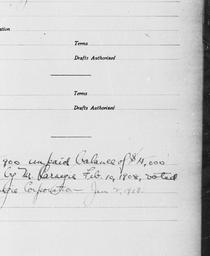 ation
Terms
Drafts Authorized
Terms
Drafts Authorized
900 unpaid balance of $11,000
by M. Feb. 10, 1908, voted
Corporation Jan 2, 1908.